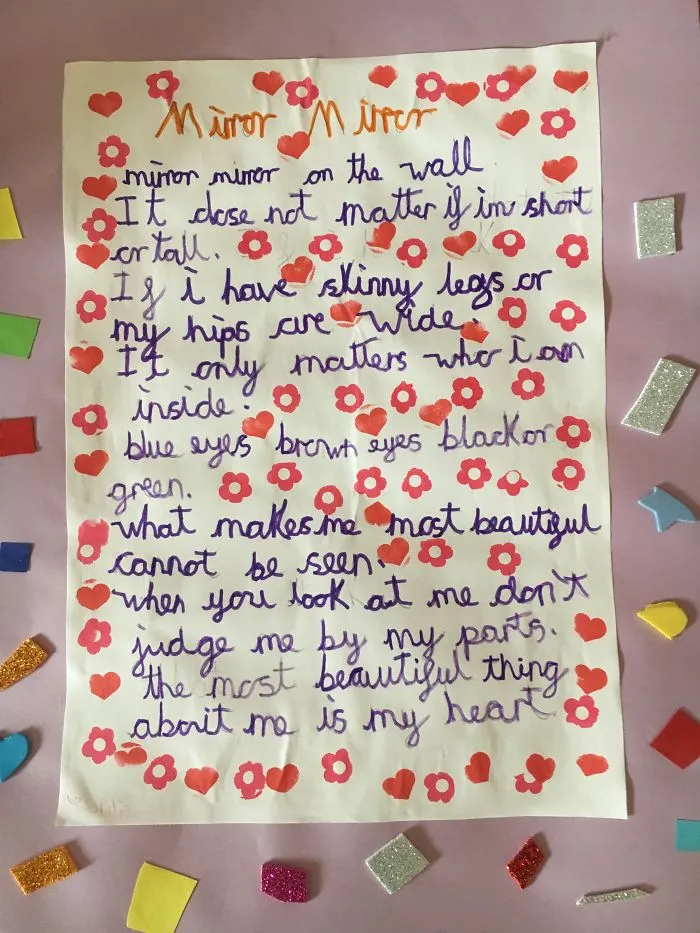 Mirror Mirror
mirror mirror on the wall
It dose not matter if im short
or tall.
If i have skinny legs or
my hips are wide.
It only matters who i am
inside.
blue eyes brown eyes black or
green.
what makes me most beautiful
cannot be seen.
when you look at me don't
judge me by my parts.
the most beautiful thing
about me is my heart